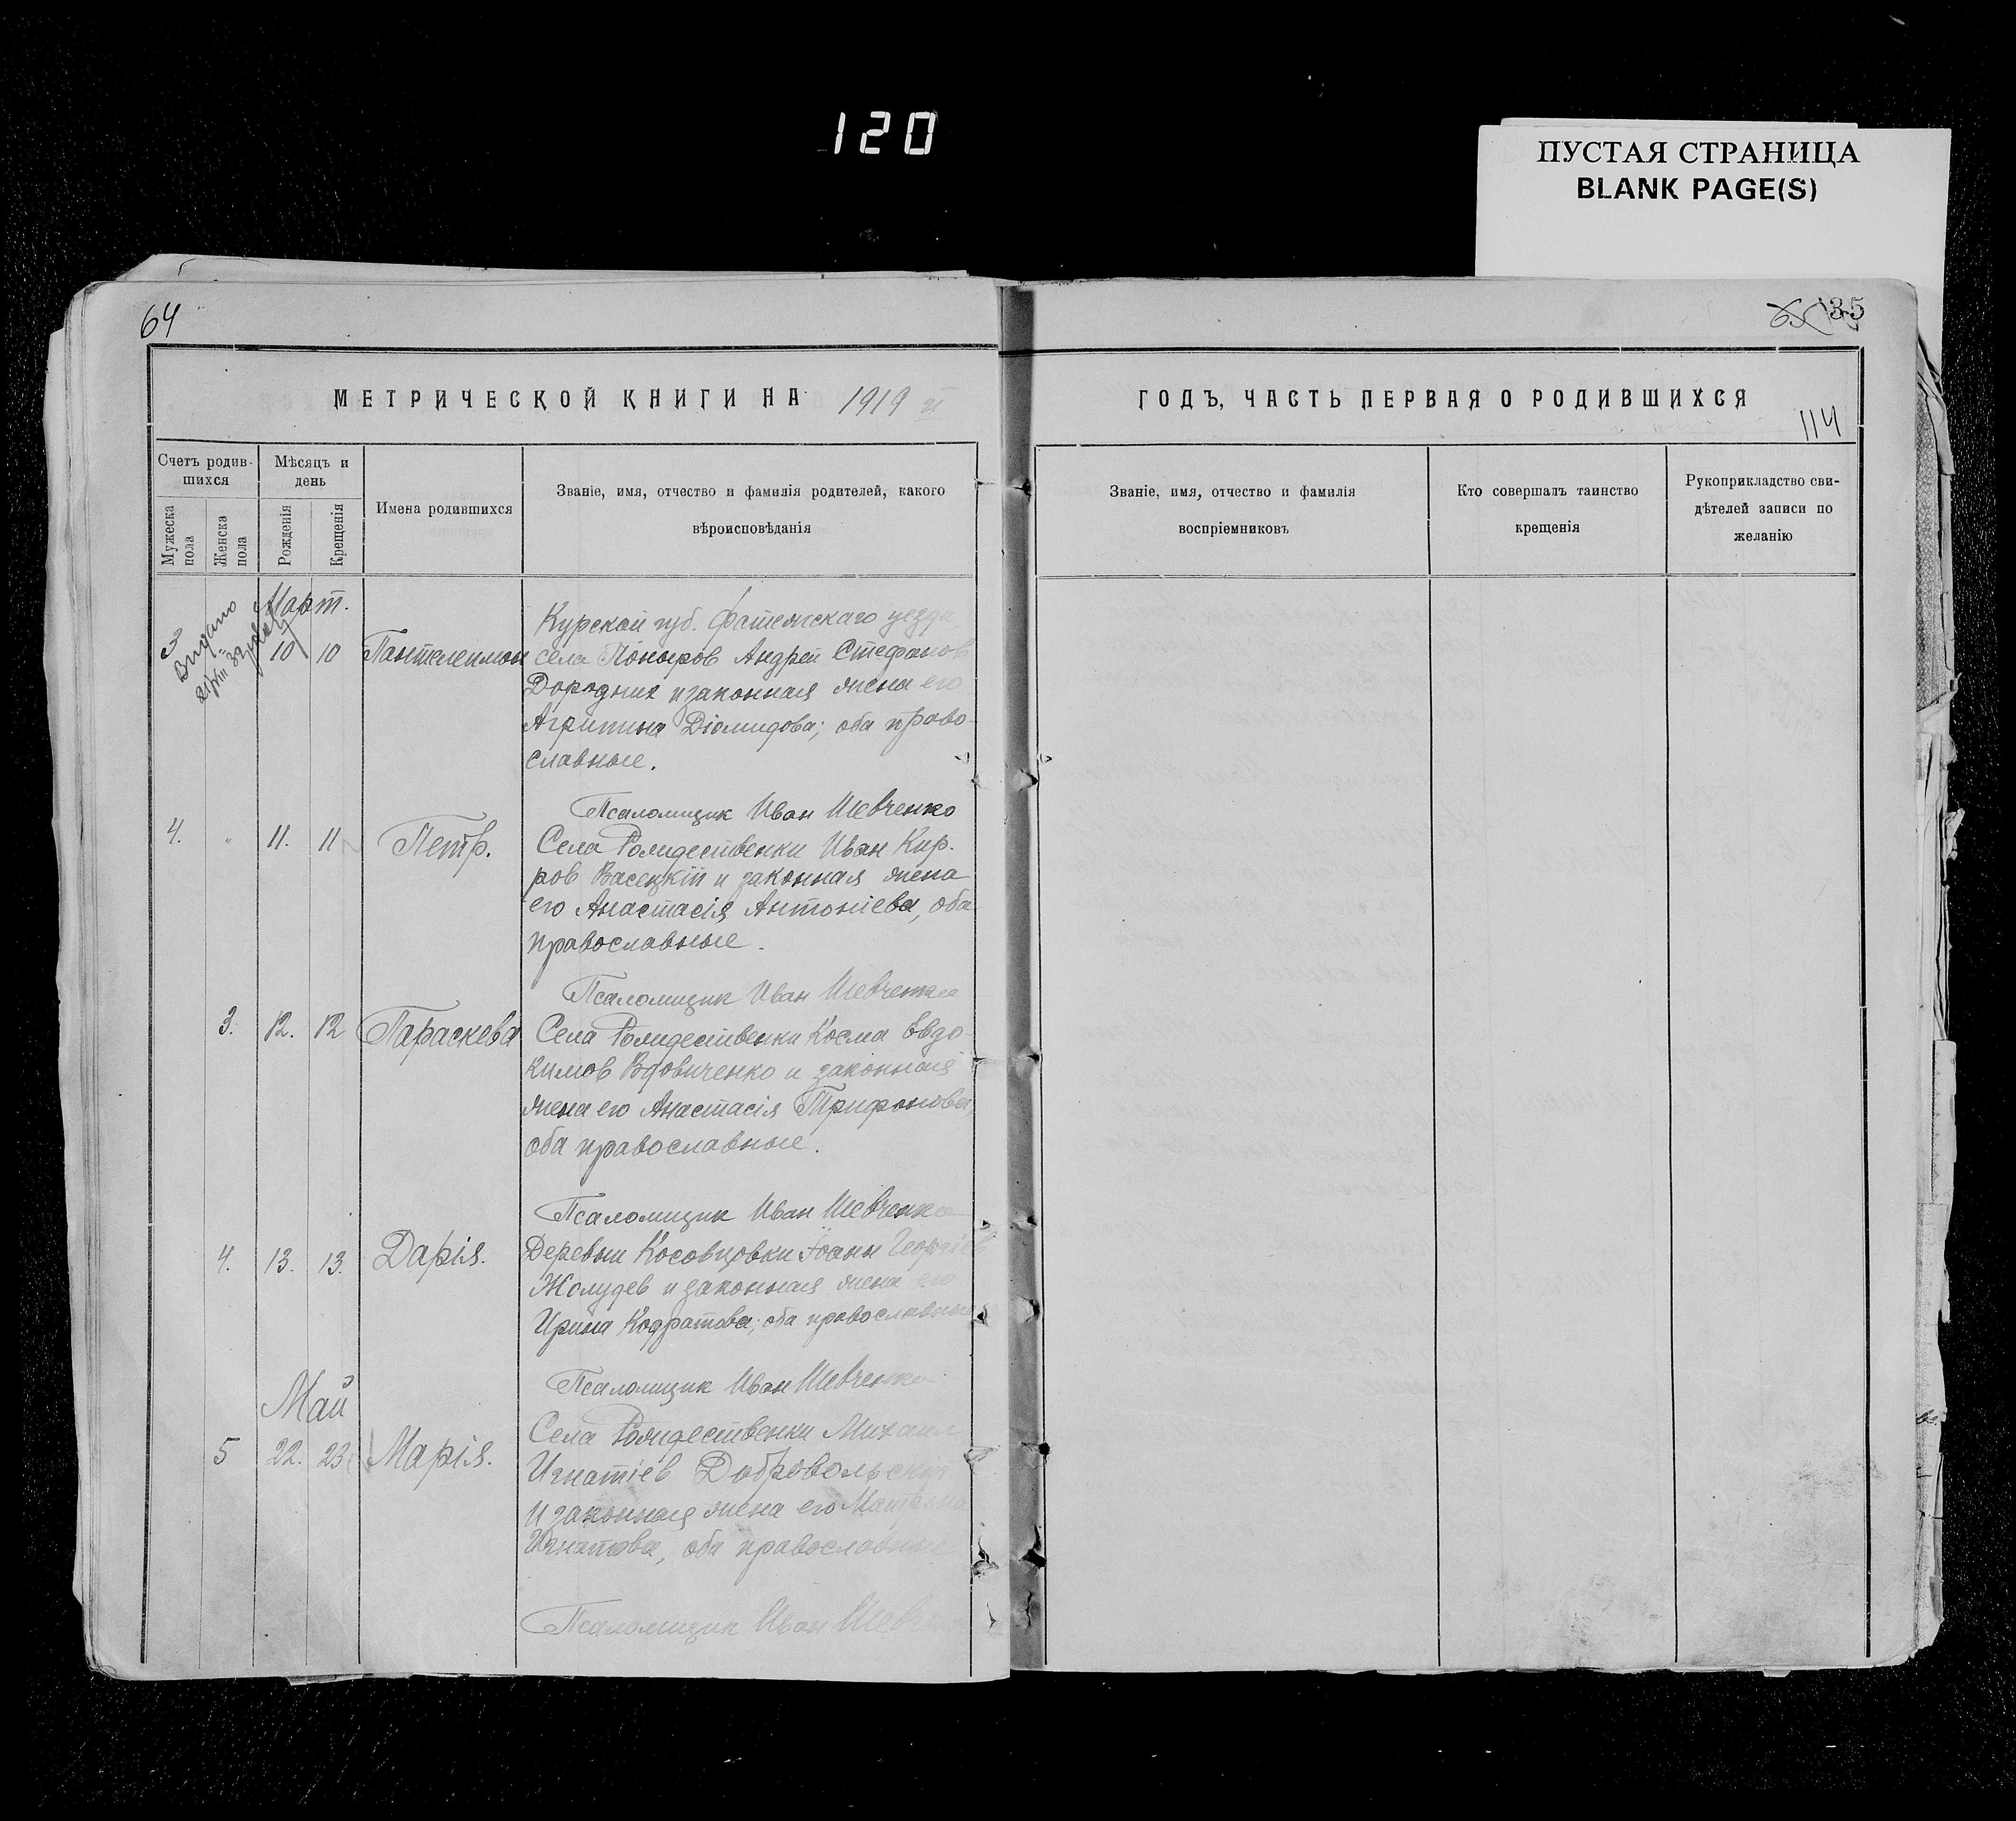 120
ПУСТАЯ СТРАНИЦА
BLANK PAGE(S)
64
МЕТРИЧЕСКОЙ КНИГИ НА 1919 й
Счетъ родив-
шихся
Мѣсяцъ и
день
Имена родившихся
Званіе, имя, отчество и фамилія родителей, какого
вѣроисповѣданія
Мужеска
пола
Женска
пола
Рожденія
Крещенія
Март.
Видано
3 10 10 Пантелеимон
Курской губ. Фатежскаго уезда
села Поныров Андрей Стефанов
Дородних и законная жена его
Агрипина Діомидова; оба право-
славные.
Псаломщик Иван Шевченко
4. " 11. 11 Петр.
Села Рождественки Иван Кир.
ров Васецкій и законная жена
его Анастасія Антоніева, оба
православные.
Псаломщик Иван Шевченко
3. 12. 12 Параскева
Села Рождественки Косма Евдо-
кимов Вдовиченко и законная
жена его Анастасія Трифонова
оба православные.
Псаломщик Иван Шевченко
4. 13. 13. Дарія.
Деревни Косовцовки Іоанн Георгіев
Жолудев и законная жена его
Ирина Кодратова; оба православные
Псаломщик Иван Шевченко
Май
5 22. 23 Марія.
Села Рождественки Михаил
Игнатіев Добровольскій
и законная жена его
Игнатова, оба православные
Псаломщик Иван Шевченко
65 35
ГОДЪ, ЧАСТЬ ПЕРВАЯ О РОДИВШИХСЯ
114
Званіе, имя, отчество и фамилія
воспріемниковъ
Кто совершалъ таинство
крещенія
Рукоприкладство сви-
дѣтелей записи по
желанію